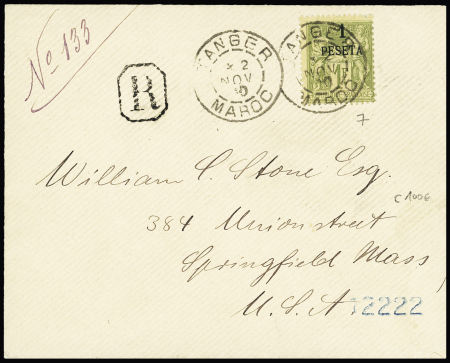 No 133
TANGER
2
NOV
MAROC
1
PESETA
TANGER
NOV
MAROC
R
7
William C. Stone Esq.
c 100€
384 Union street
Springfield Mass
U.S.A
12222